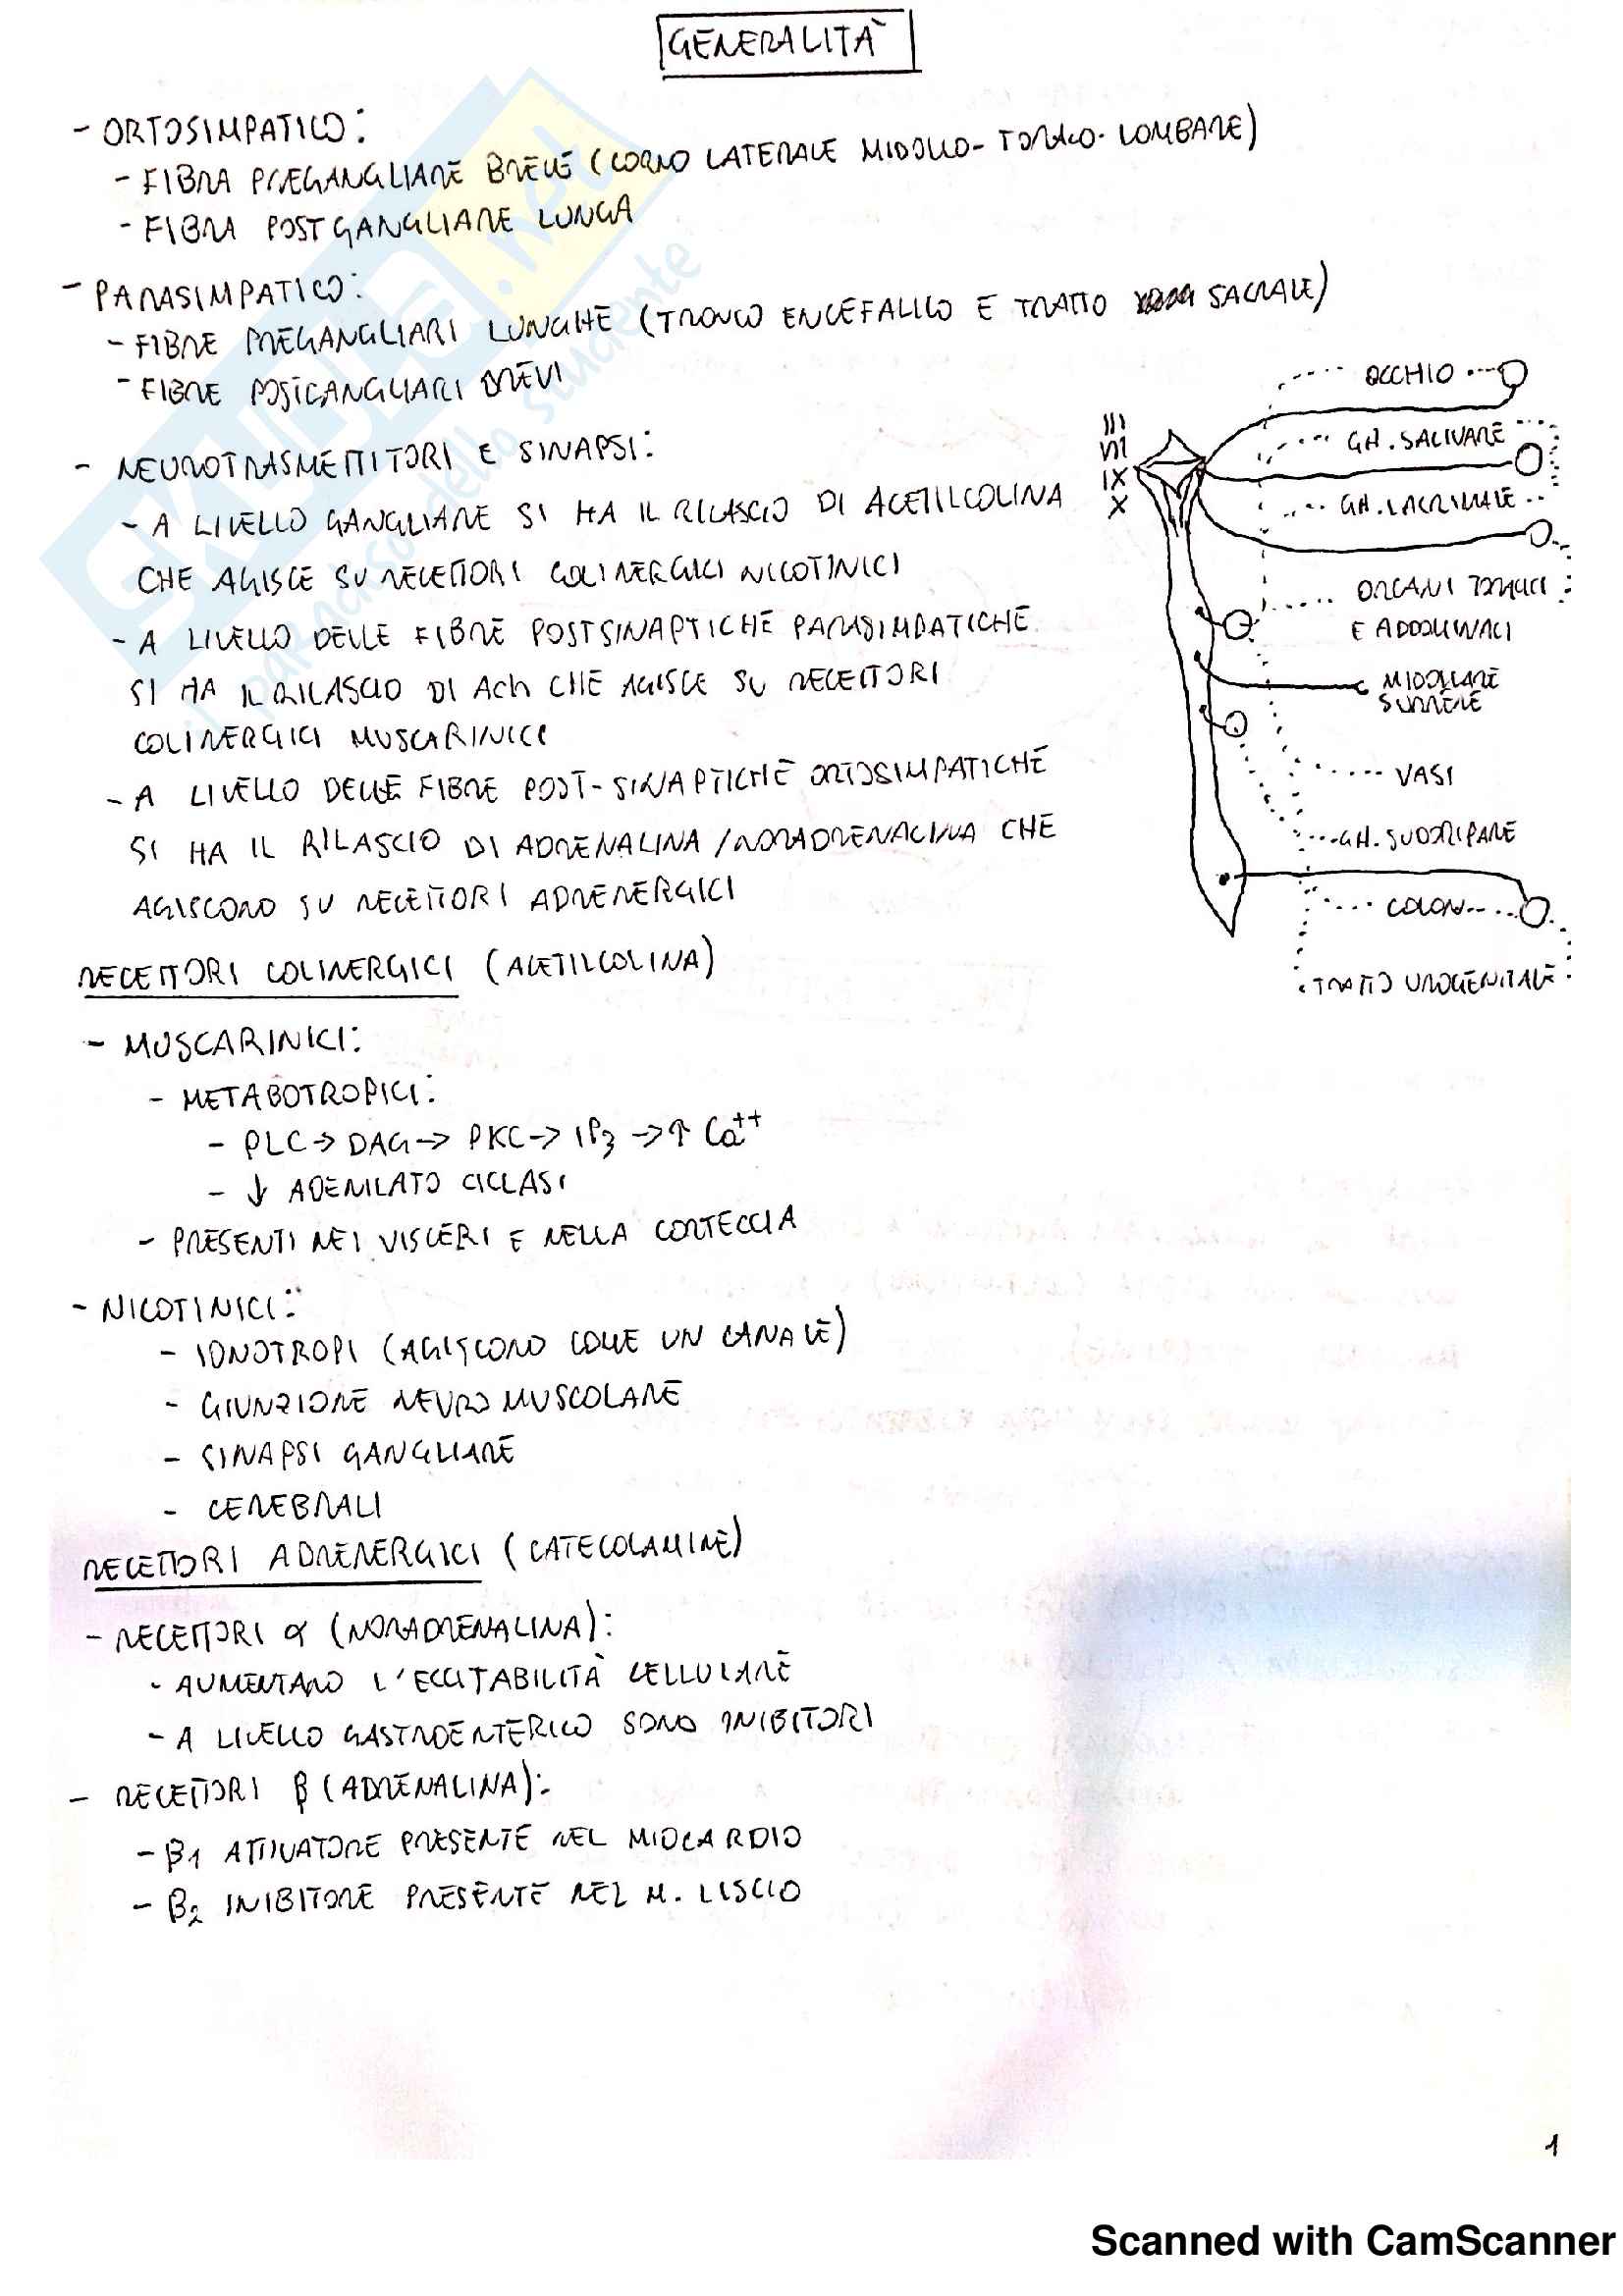 GENERALITÀ
- ORTOSIMPATICO:
- FIBRA PREGANGLIARE BREVE (CORNO LATERALE MIDOLLO-TORACO-LOMBARE)
- FIBRA POSTGANGLIARE LUNGA
- PARASIMPATICO:
- FIBRE PREGANGLIARI LUNGHE (TRONCO ENCEFALICO E TRATTO SACRALE)
- FIBRE POSTGANGLIARI BREVI
- NEUROTRASMETTITORI E SINAPSI:
- A LIVELLO GANGLIARE SI HA IL RILASCIO DI ACETILCOLINA
CHE AGISCE SU RECETTORI COLINERGICI NICOTINICI
- A LIVELLO DELLE FIBRE POSTSINAPTICHE PARASIMPATICHE
SI HA IL RILASCIO DI ACh CHE AGISCE SU RECETTORI
COLINERGICI MUSCARINICI
- A LIVELLO DELLE FIBRE POST-SINAPTICHE ORTOSIMPATICHE
SI HA IL RILASCIO DI ADRENALINA/NORADRENALINA CHE
AGISCONO SU RECETTORI ADRENERGICI
III
VII
IX
X
OCCHIO
GH. SALIVARE
GH. LACRIMALE
ORGANI TORACICI
E ADDOMINALI
MIDOLLARE
SURRENE
VASI
GH. SUDORIPARE
COLON
TRATTO UROGENITALE
RECETTORI COLINERGICI (ACETILCOLINA)
- MUSCARINICI:
- METABOTROPICI:
- PLC → DAG → PKC → IP3 → ↑ Ca++
- ↓ ADENILATO CICLASI
- PRESENTI NEI VISCERI E NELLA CORTECCIA
- NICOTINICI:
- IONOTROPI (AGISCONO COME UN CANALE)
- GIUNZIONE NEUROMUSCOLARE
- SINAPSI GANGLIARE
- CEREBRALI
RECETTORI ADRENERGICI (CATECOLAMINE)
- RECETTORI α (NORADRENALINA):
- AUMENTANO L'ECCITABILITÀ CELLULARE
- A LIVELLO GASTROENTERICO SONO INIBITORI
- RECETTORI β (ADRENALINA):
- β1 ATTIVATORE PRESENTE NEL MIOCARDIO
- β2 INIBITORE PRESENTE NEL M. LISCIO
1
SKUOLA.net
il paradiso dello studente
Scanned with CamScanner